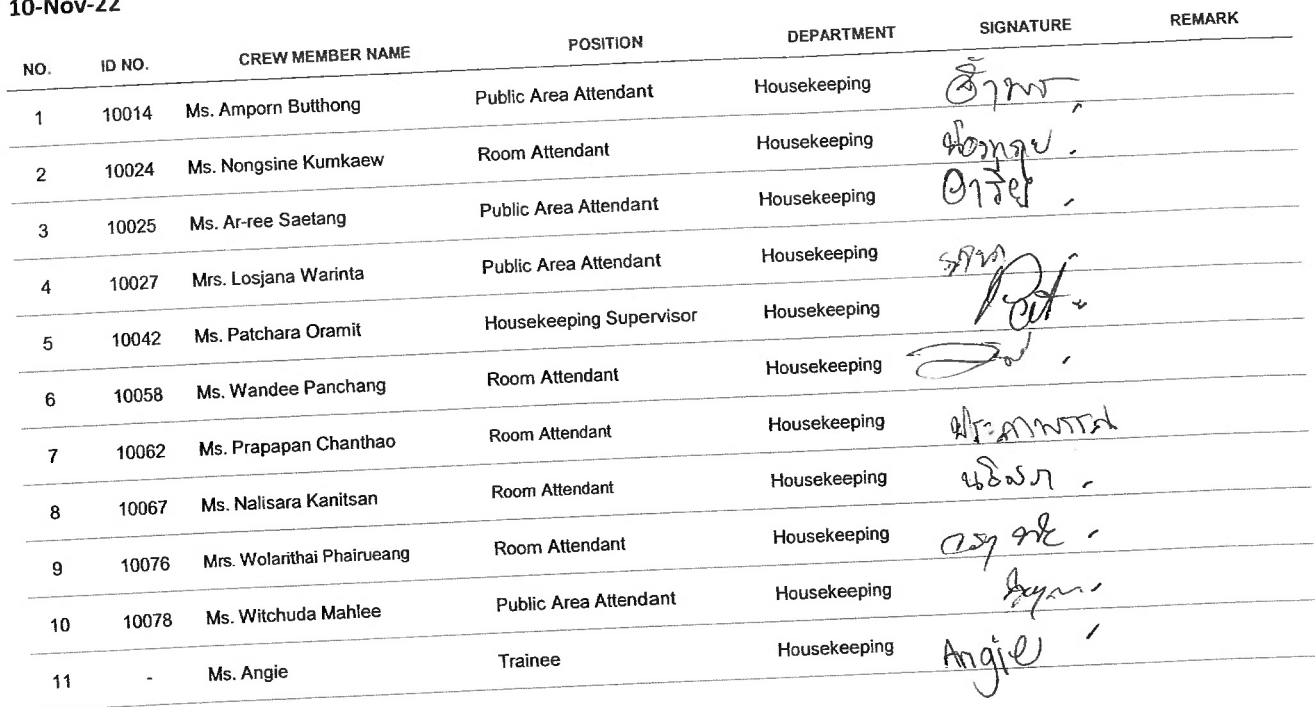 10-Nov-22
NO. ID NO. CREW MEMBER NAME POSITION DEPARTMENT SIGNATURE REMARK
1 10014 Ms. Amporn Butthong Public Area Attendant Housekeeping
2 10024 Ms. Nongsine Kumkaew Room Attendant Housekeeping
3 10025 Ms. Ar-ree Saetang Public Area Attendant Housekeeping
4 10027 Mrs. Losjana Warinta Public Area Attendant Housekeeping
5 10042 Ms. Patchara Oramit Housekeeping Supervisor Housekeeping
6 10058 Ms. Wandee Panchang Room Attendant Housekeeping
7 10062 Ms. Prapapan Chanthao Room Attendant Housekeeping ประภาพรรณ
8 10067 Ms. Nalisara Kanitsan Room Attendant Housekeeping
9 10076 Mrs. Wolarithai Phairueang Room Attendant Housekeeping
10 10078 Ms. Witchuda Mahlee Public Area Attendant Housekeeping
11 - Ms. Angie Trainee Housekeeping Angie